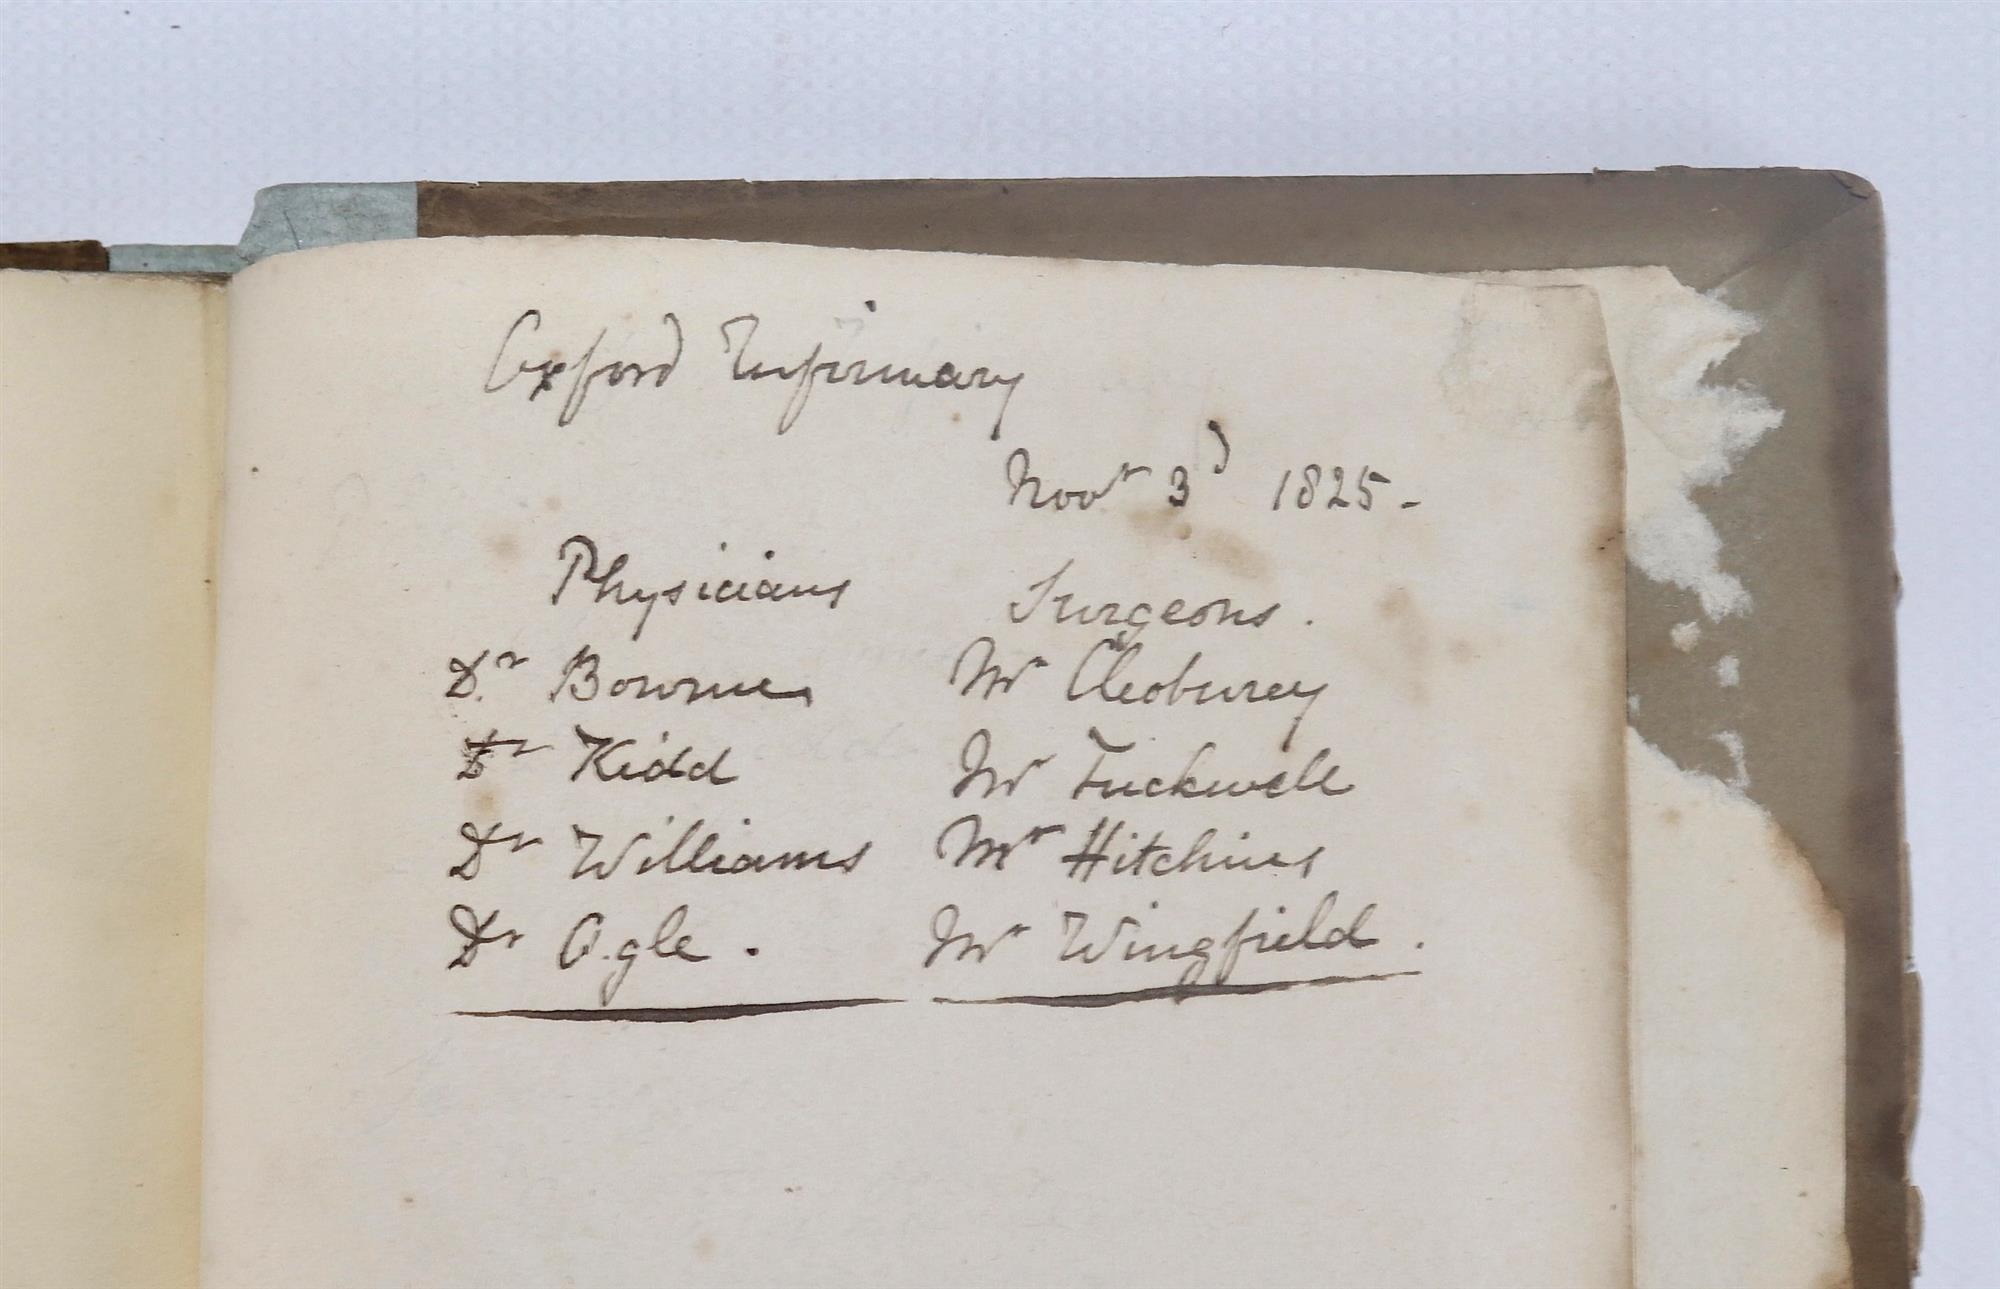 Oxford Infirmary
Novr 3d 1825-
Physicians Surgeons.
Dr Bourne Mr Cleoburey
Dr Kidd Mr Tuckwell
Dr Williams Mr Hitchins
Dr Ogle. Mr Wingfield.